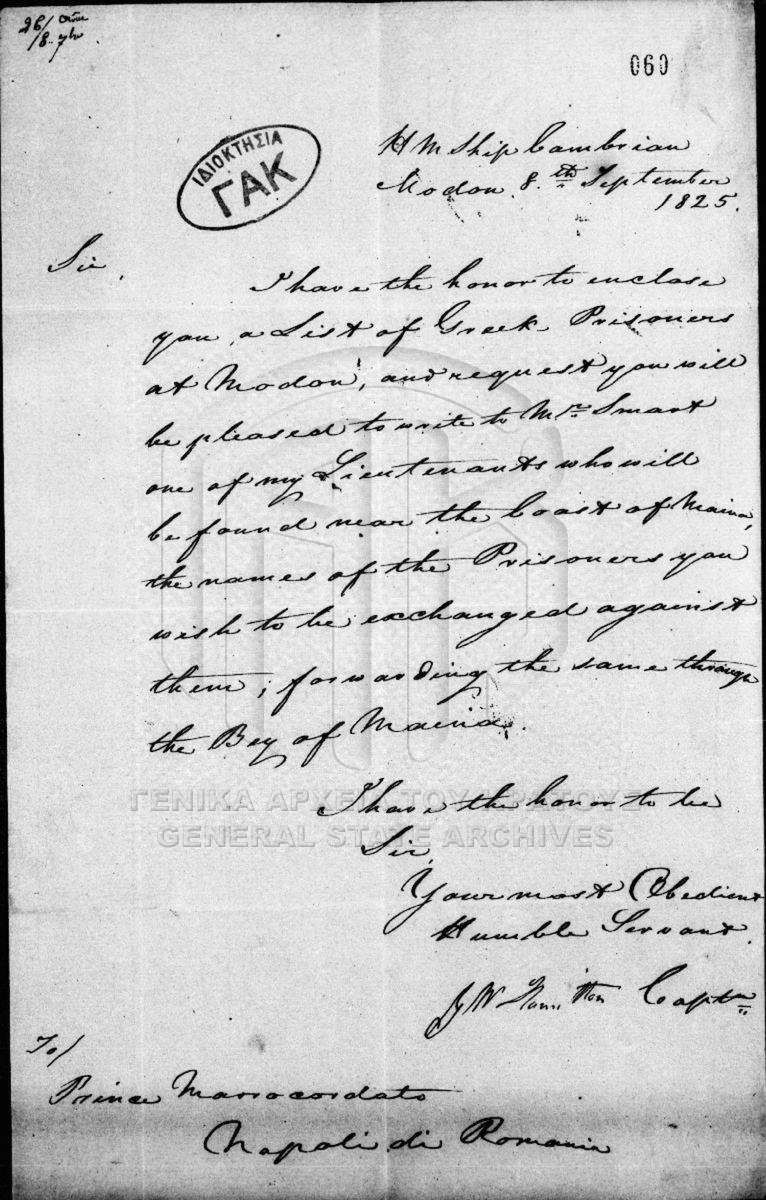 26/
/8.
060
ΙΔΙΟΚΤΗΣΙΑ
ΓΑΚ
HM Ship Cambrian
Modon. 8.th September
1825.
Sir,
I have the honor to enclose
you, a List of Greek Prisoners
at Modon, and request you will
be pleased to write to Mr. Smart
one of my Lieutenants who will
be found near the Coast of Maina,
the names of the Prisoners you
wish to be exchanged against
them; forwarding the same through
the Bey of Maina.
ΓΕΝΙΚΑ ΑΡΧΕΙΑ ΤΟΥ ΚΡΑΤΟΥΣ
GENERAL STATE ARCHIVES
I have the honor to be
Sir,
Your most Obedient
Humble Servant.
Hamilton Captn
To/
Prince Mavrocordato
Napoli di Romania